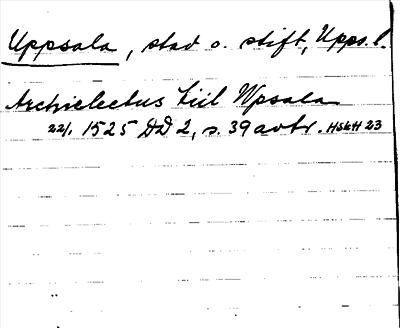 Uppsala, stad o. stift, Upps. l.
Archielectus tiil Wpsala
22/1 1525 DD 2, s. 39 avtr. HSkH 23